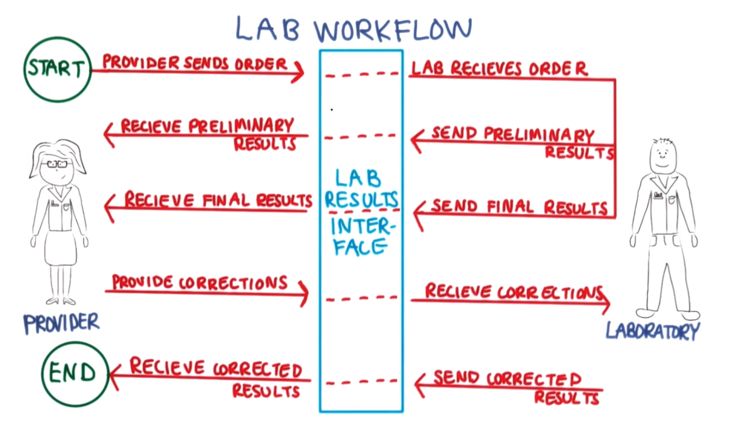 LAB WORKFLOW
START
PROVIDER SENDS ORDER
LAB RECIEVES ORDER
RECIEVE PRELIMINARY
RESULTS
SEND PRELIMINARY
RESULTS
LAB
RESULTS
INTER-
FACE
RECIEVE FINAL RESULTS
SEND FINAL RESULTS
PROVIDE CORRECTIONS
RECIEVE CORRECTIONS
PROVIDER
LABORATORY
END
RECIEVE CORRECTED
RESULTS
SEND CORRECTED
RESULTS